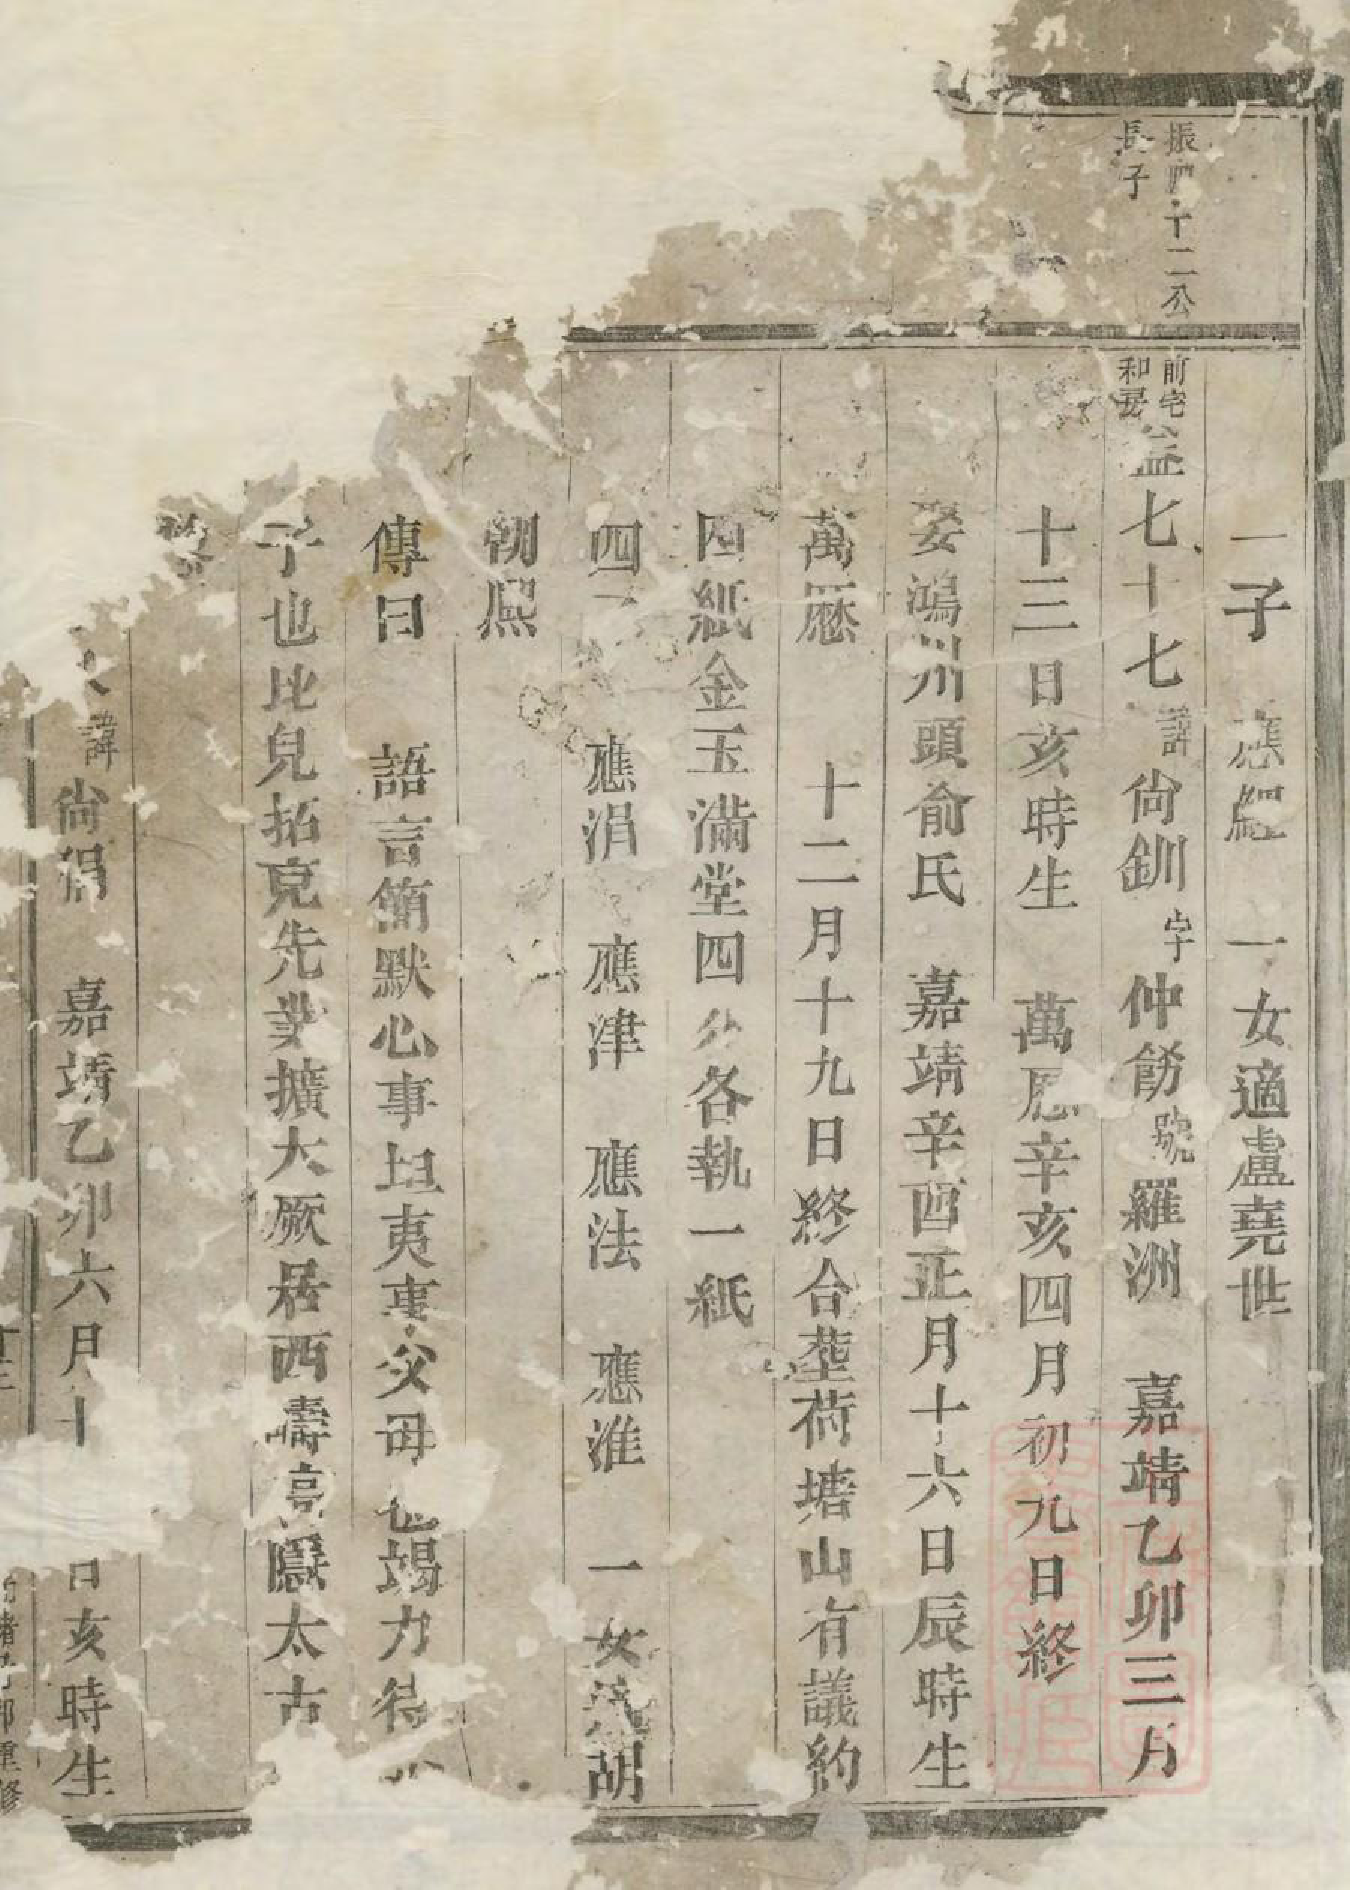 一子 應 一女適盧堯世
振 十二公
長子
前宅
和房
益七十七諱尙釧字仲餝號羅洲 嘉靖乙卯三月
十三日亥時生 萬曆辛亥四月初九日終
娶鴻州頭俞氏 嘉靖辛酉正月十六日辰時生
萬曆 十二月十九日終合塟荷塘山有議約
四紙金玉滿堂四 各執一紙
四子 應涓 應津 應法 應淮 一女適 胡
朝熈
傳曰 語言簡默心事坦夷事父母 竭力待
子也比兒拓克先業擴大厥居西疇高隱太古
諱尙 嘉靖乙卯六月十 日亥時生
十三
重修